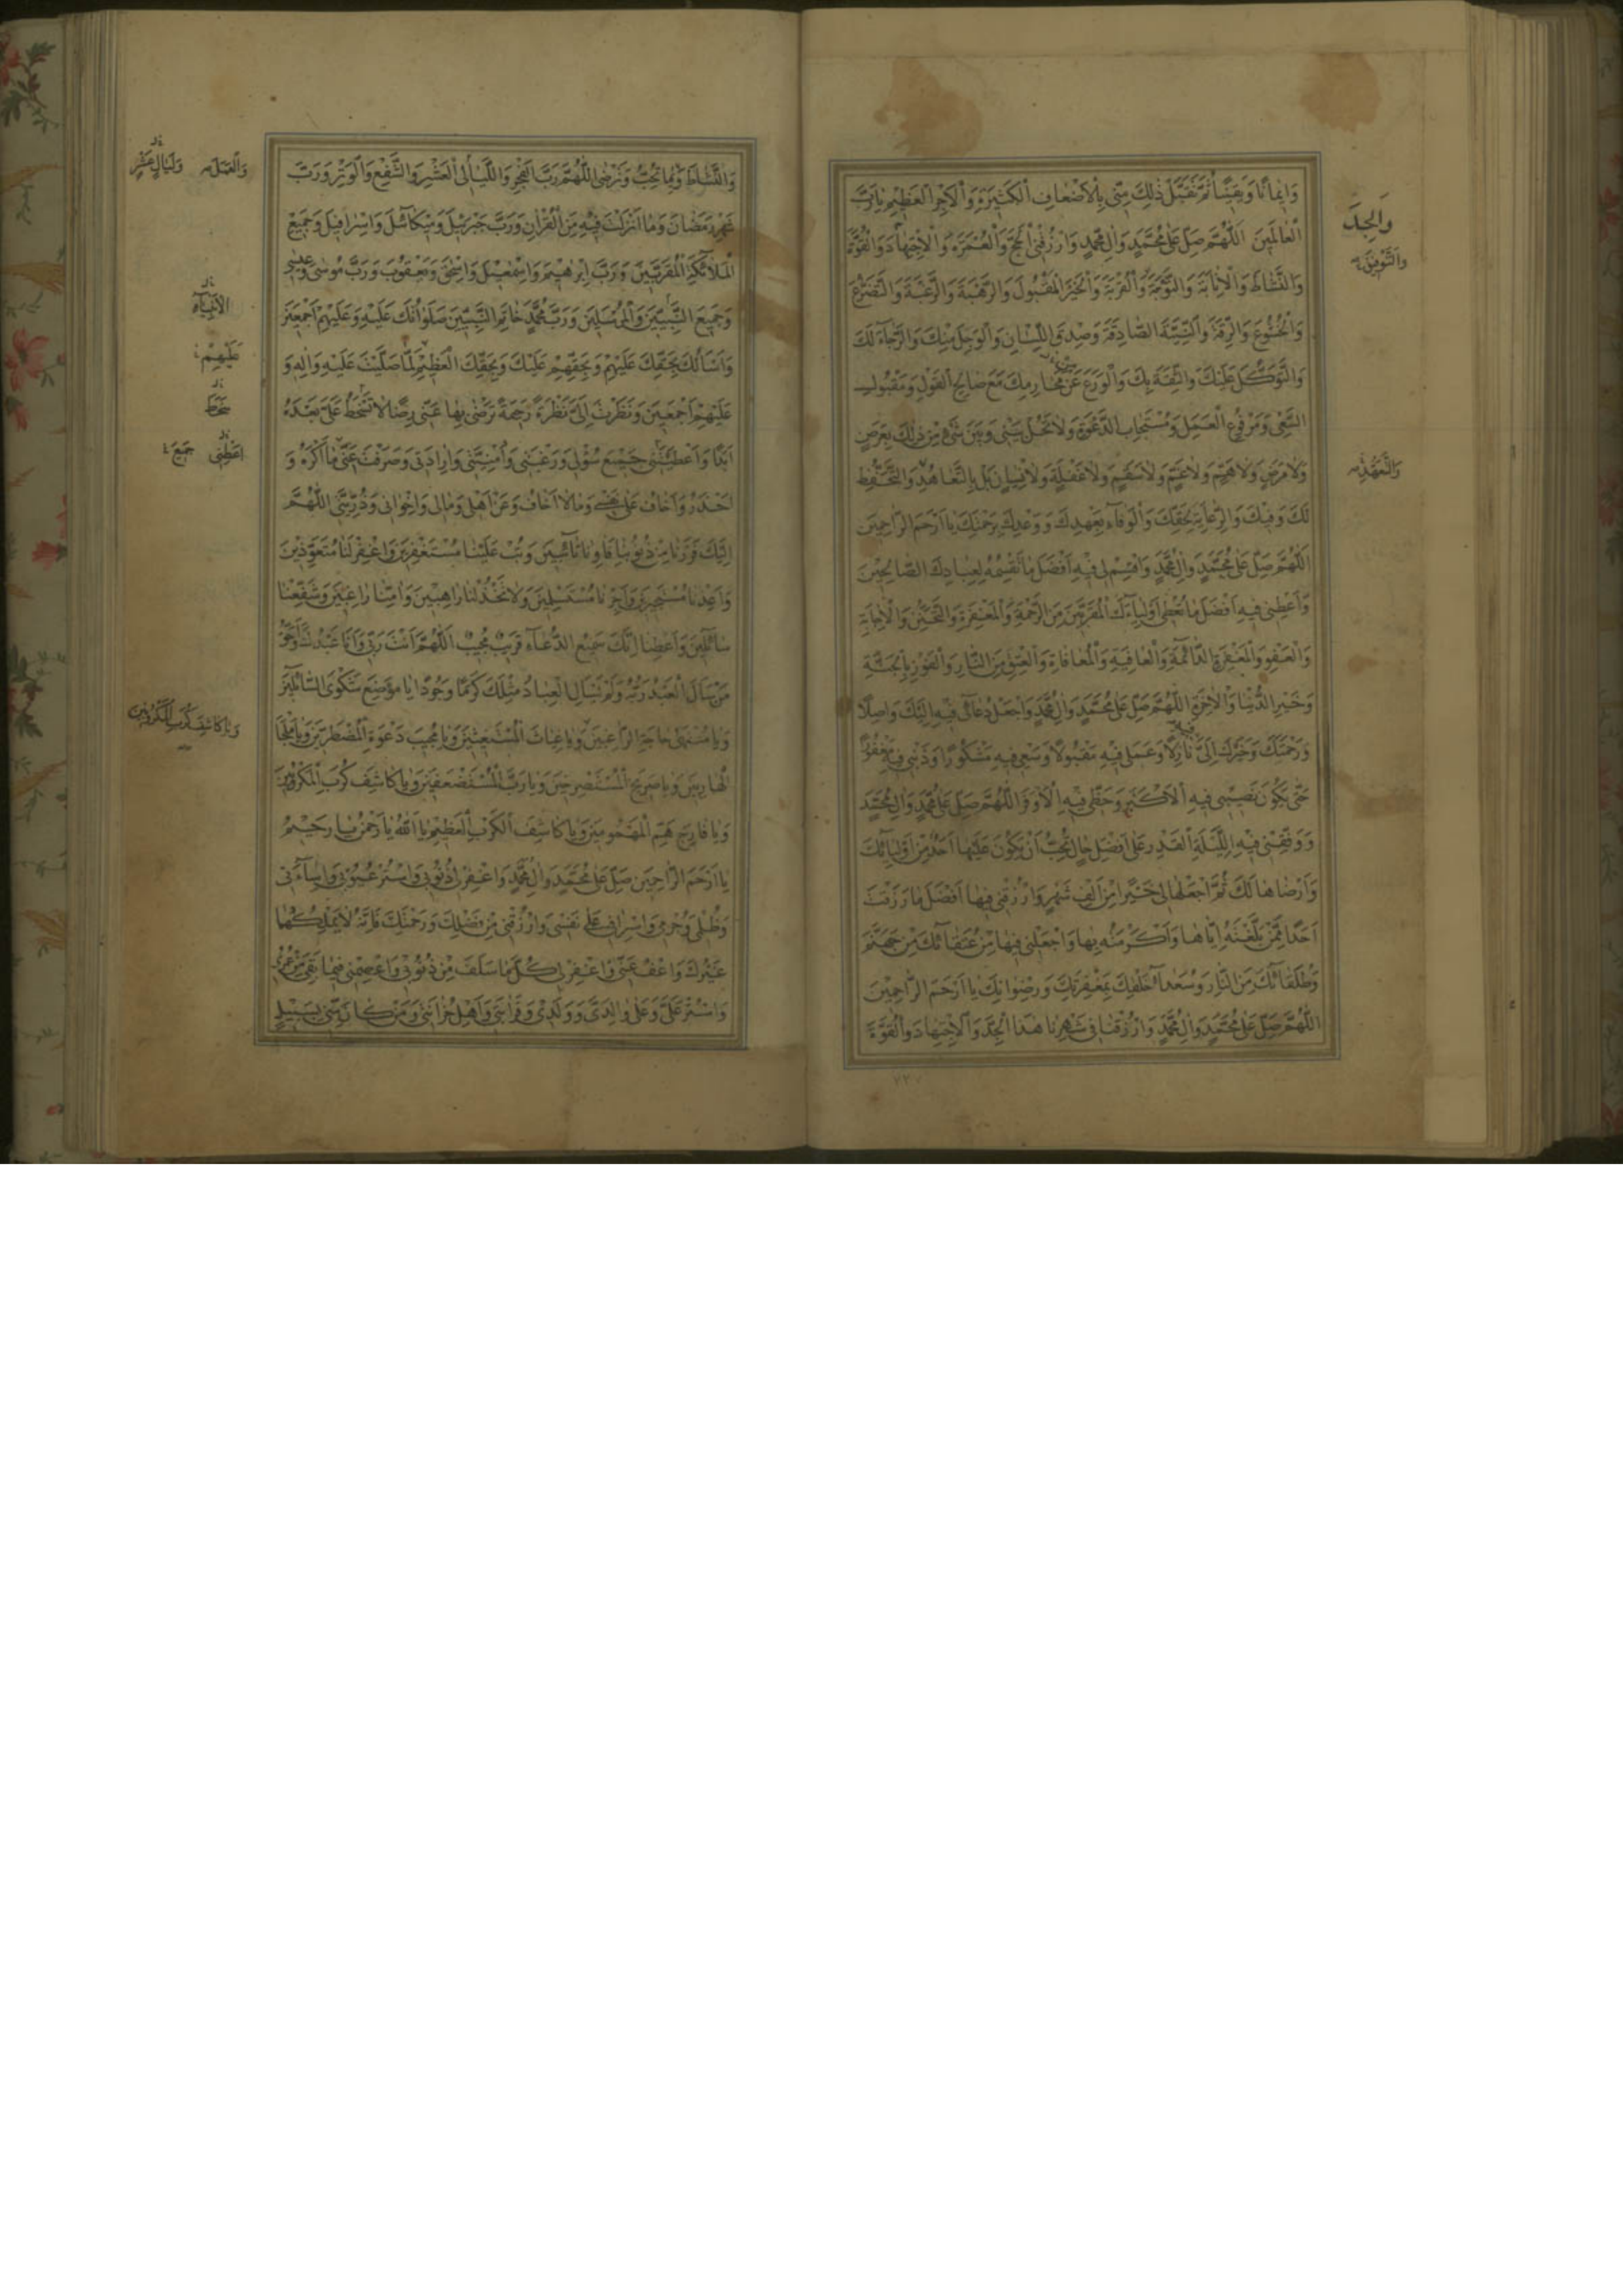 وَاِيمانًا وَيَقينًا ثُمَّ تَقَبَّلْ ذٰلِكَ مِنّى بِالْاَضْعافِ الْكَثيرَةِ وَالْاَجْرِ الْعَظيمِ يا رَبَّ
الْعالَمينَ اَللّٰهُمَّ صَلِّ عَلٰى مُحَمَّدٍ وَاٰلِ مُحَمَّدٍ وَارْزُقْنِى الْحَجَّ وَالْعُمْرَةَ وَالْاِجْتِهادَ وَالْقُوَّةَ
وَالنَّشاطَ وَالْاِنابَةَ وَالتَّوْبَةَ وَالْقُرْبَةَ وَالْخَيْرَ الْمَقْبُولَ وَالرَّهْبَةَ وَالرَّغْبَةَ وَالتَّضَرُّعَ
وَالْخُشُوعَ وَالرِّقَّةَ وَالنِّيَّةَ الصّادِقَةَ وَصِدْقَ اللِّسانِ وَالْوَجَلَ مِنْكَ وَالرَّجاءَ لَكَ
وَالتَّوَكُّلَ عَلَيْكَ وَالثِّقَةَ بِكَ وَالْوَرَعَ عَنْ مَحارِمِكَ مَعَ صالِحِ الْقَوْلِ وَمَقْبُولِ
السَّعْىِ وَمَرْفُوعِ الْعَمَلِ وَمُسْتَجابِ الدَّعْوَةِ وَلا تَحُلْ بَيْنى وَبَيْنَ شَىْءٍ مِنْ ذٰلِكَ بِعَرَضٍ
وَلا مَرَضٍ وَلا هَمٍّ وَلا غَمٍّ وَلا سَقَمٍ وَلا غَفْلَةٍ وَلا نِسْيانٍ بَلْ بِالتَّعاهُدِ وَالتَّحَفُّظِ
لَكَ وَفيكَ وَالرِّعايَةِ لِحَقِّكَ وَالْوَفاءِ بِعَهْدِكَ وَوَعْدِكَ بِرَحْمَتِكَ يا اَرْحَمَ الرّاحِمينَ
اَللّٰهُمَّ صَلِّ عَلٰى مُحَمَّدٍ وَاٰلِ مُحَمَّدٍ وَاقْسِمْ لى فيهِ اَفْضَلَ ما تَقْسِمُهُ لِعِبادِكَ الصّالِحينَ
وَاَعْطِنى فيهِ اَفْضَلَ ما تُعْطى اَوْلِياءَكَ الْمُقَرَّبينَ مِنَ الرَّحْمَةِ وَالْمَغْفِرَةِ وَالتَّحَنُّنِ وَالْاِجابَةِ
وَالْعَفْوِ وَالْمَغْفِرَةِ الدّائِمَةِ وَالْعافِيَةِ وَالْمُعافاةِ وَالْعِتْقِ مِنَ النّارِ وَالْفَوْزِ بِالْجَنَّةِ
وَخَيْرِ الدُّنْيا وَالْاٰخِرَةِ اَللّٰهُمَّ صَلِّ عَلٰى مُحَمَّدٍ وَاٰلِ مُحَمَّدٍ وَاجْعَلْ دُعائى فيهِ اِلَيْكَ واصِلًا
وَرَحْمَتَكَ وَخَيْرَكَ اِلَىَّ فيهِ نازِلًا وَعَمَلى فيهِ مَقْبُولًا وَسَعْيى فيهِ مَشْكُورًا وَذَنْبى فيهِ مَغْفُورًا
حَتّٰى يَكُونَ نَصيبى فيهِ الْاَكْثَرَ وَحَظّى فيهِ الْاَوْفَرَ اَللّٰهُمَّ صَلِّ عَلٰى مُحَمَّدٍ وَاٰلِ مُحَمَّدٍ
وَوَفِّقْنى فيهِ لِلَيْلَةِ الْقَدْرِ عَلٰى اَفْضَلِ حالٍ تُحِبُّ اَنْ يَكُونَ عَلَيْها اَحَدٌ مِنْ اَوْلِيائِكَ
وَاَرْضاها لَكَ ثُمَّ اجْعَلْها لى خَيْرًا مِنْ اَلْفِ شَهْرٍ وَارْزُقْنى فيها اَفْضَلَ ما رَزَقْتَ
اَحَدًا مِمَّنْ بَلَّغْتَهُ اِيّاها وَاَكْرَمْتَهُ بِها وَاجْعَلْنى فيها مِنْ عُتَقائِكَ مِنْ جَهَنَّمَ
وَطُلَقائِكَ مِنَ النّارِ وَسُعَداءِ خَلْقِكَ بِمَغْفِرَتِكَ وَرِضْوانِكَ يا اَرْحَمَ الرّاحِمينَ
اَللّٰهُمَّ صَلِّ عَلٰى مُحَمَّدٍ وَاٰلِ مُحَمَّدٍ وَارْزُقْنا فى شَهْرِنا هٰذَا الْجِدَّ وَالْاِجْتِهادَ وَالْقُوَّةَ
وَالْجِدَّ
وَالتَّعَهُّدِ
٧٢٧
وَالنَّشاطَ وَما تُحِبُّ وَتَرْضٰى اَللّٰهُمَّ رَبَّ الْفَجْرِ وَاللَّيالِى الْعَشْرِ وَالشَّفْعِ وَالْوَتْرِ وَرَبَّ
شَهْرِ رَمَضانَ وَما اَنْزَلْتَ فيهِ مِنَ الْقُرْاٰنِ وَرَبَّ جَبْرَئيلَ وَميكائيلَ وَاِسْرافيلَ وَجَميعِ
الْمَلائِكَةِ الْمُقَرَّبينَ وَرَبَّ اِبْرٰهيمَ وَاِسْمٰعيلَ وَاِسْحٰقَ وَيَعْقُوبَ وَرَبَّ مُوسٰى وَعيسٰى
وَجَميعِ النَّبِيّينَ وَالْمُرْسَلينَ وَرَبَّ مُحَمَّدٍ خاتَمِ النَّبِيّينَ صَلَواتُكَ عَلَيْهِ وَعَلَيْهِمْ اَجْمَعينَ
وَاَسْاَلُكَ بِحَقِّكَ عَلَيْهِمْ وَبِحَقِّهِمْ عَلَيْكَ وَبِحَقِّكَ الْعَظيمِ لَمّا صَلَّيْتَ عَلَيْهِ وَاٰلِهِ وَ
عَلَيْهِمْ اَجْمَعينَ وَنَظَرْتَ اِلَىَّ نَظْرَةً رَحْمَةً تَرْضٰى بِها عَنّى رِضًا لا تَسْخَطُ عَلَىَّ بَعْدَهُ
اَبَدًا وَاَعْطَيْتَنى جَميعَ سُؤْلى وَرَغْبَتى وَاُمْنِيَّتى وَاِرادَتى وَصَرَفْتَ عَنّى ما اَكْرَهُ وَ
اَحْذَرُ وَاَخافُ عَلٰى نَفْسى وَما لا اَخافُ وَعَنْ اَهْلى وَمالى وَاِخْوانى وَذُرِّيَّتى اَللّٰهُمَّ
اِلَيْكَ فَرَرْنا مِنْ ذُنُوبِنا فَاٰوِنا تائِبينَ وَتُبْ عَلَيْنا مُسْتَغْفِرينَ وَاغْفِرْ لَنا مُتَعَوِّذينَ
وَاَعِذْنا مُسْتَجيرينَ وَاَجِرْنا مُسْتَسْلِمينَ وَلا تَخْذُلْنا راهِبينَ وَاٰمِنّا راغِبينَ وَشَفِّعْنا
سائِلينَ وَاَعْطِنا اِنَّكَ سَميعُ الدُّعاءِ قَريبٌ مُجيبٌ اَللّٰهُمَّ اَنْتَ رَبّى وَاَنَا عَبْدُكَ وَاَحَقُّ
مَنْ سَاَلَ الْعَبْدُ رَبُّهُ وَلَمْ يَسْاَلِ الْعِبادُ مِثْلَكَ كَرَمًا وَجُودًا يا مَوْضِعَ شَكْوَى السّائِلينَ
وَيا مُنْتَهٰى حاجَةِ الرّاغِبينَ وَيا غِياثَ الْمُسْتَغيثينَ وَيا مُجيبَ دَعْوَةِ الْمُضْطَرّينَ وَيا مَلْجَاَ
الْهارِبينَ وَيا صَريخَ الْمُسْتَصْرِخينَ وَيا رَبَّ الْمُسْتَضْعَفينَ وَيا كاشِفَ كُرَبِ الْمَكْرُوبينَ
وَيا فارِجَ هَمِّ الْمَهْمُومينَ وَيا كاشِفَ الْكَرْبِ الْعَظيمِ يا اَللّٰهُ يا رَحْمٰنُ يا رَحيمُ
يا اَرْحَمَ الرّاحِمينَ صَلِّ عَلٰى مُحَمَّدٍ وَاٰلِ مُحَمَّدٍ وَاغْفِرْ لى ذُنُوبى وَاسْتُرْ عُيُوبى وَاِساءَتى
وَظُلْمى وَجُرْمى وَاِسْرافى عَلٰى نَفْسى وَارْزُقْنى مِنْ فَضْلِكَ وَرَحْمَتِكَ فَاِنَّهُ لا يَمْلِكُها
غَيْرُكَ وَاعْفُ عَنّى وَاغْفِرْ لى كُلَّ ما سَلَفَ مِنْ ذُنُوبى وَاعْصِمْنى فيما بَقِىَ مِنْ عُمْرى
وَاسْتُرْ عَلَىَّ وَعَلٰى والِدَىَّ وَوَلَدى وَقَرابَتى وَاَهْلِ حُزانَتى وَمَنْ كانَ مِنّى بِسَبيلٍ
وَلَيالٍ عَشْرٍ
الْاَنْبِياءِ
عَلَيْهِمْ
اَعْطِنى جَميعَ
وَيا كاشِفَ كَرْبِ الْمَكْرُوبينَ